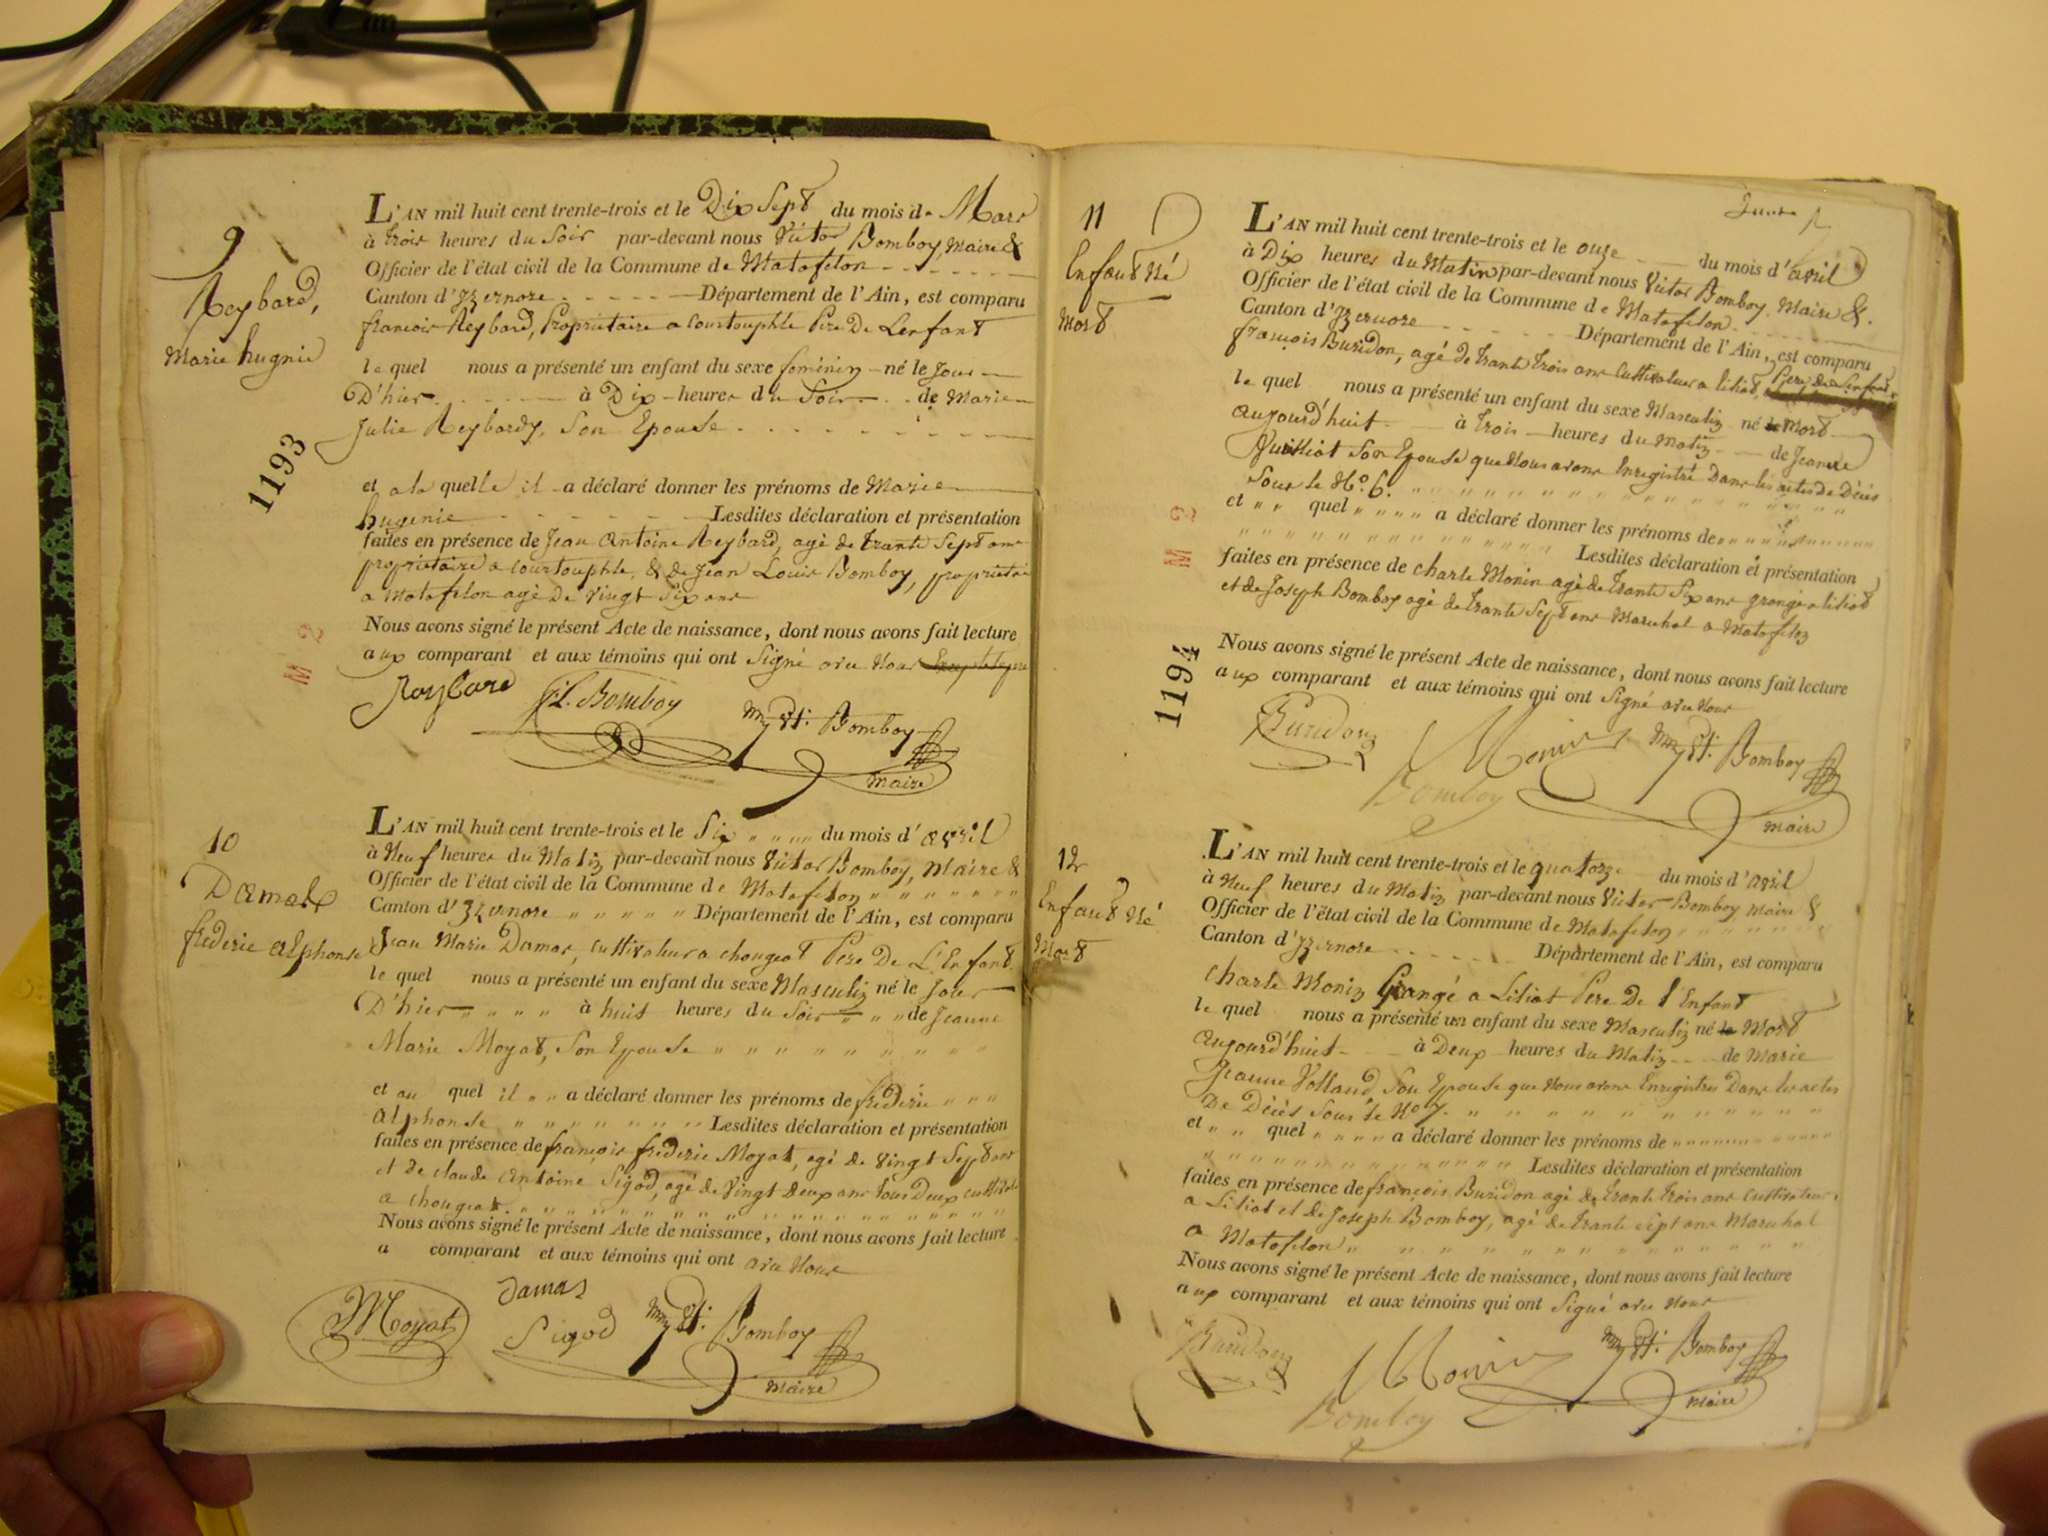 9
Reybard,
Marie hugnie
1193
M 2
L'AN mil huit cent trente-trois et le Dix Sept du mois de Mars
à trois heures du Soir par-devant nous Victor Bomboy, Maire &
Officier de l'état civil de la Commune de Matafelon
Canton d'Izernore Département de l'Ain, est comparu
francois Reybard, Propriétaire a Courtouphle Pere De Lenfant
le quel nous a présenté un enfant du sexe feminin né le Jour
D'hier à Dix heures du Soir de Marie
Julie Reybard, Son Epouse
et a la quelle il a déclaré donner les prénoms de Marie
hugenie Lesdites déclaration et présentation
faites en présence de Jean antoine Reybard, agé de trante Sept ans
propriétaire a Courtouphle, & de Jean Louis Bomboy, proprietre
a Matafelon agé De Vingt Six ans
Nous avons signé le présent Acte de naissance, dont nous avons fait lecture
aux comparant et aux témoins qui ont Signé avec Nous
Reybard J.L. Bomboy Bomboy
Maire
10
Damas
frederic alphonse
L'AN mil huit cent trente-trois et le Six " " " " du mois d'avril
à Neuf heures du Matin par-devant nous Victor Bomboy, Maire &
Officier de l'état civil de la Commune de Matafelon " " " " " "
Canton d'Izernore " " " " " Département de l'Ain, est comparu
Jean Marie Damas, Cultivateur a chougeat Pere De L'Enfant
le quel nous a présenté un enfant du sexe Masculin né le Jour
D'hier " " " " à huit heures du Soir " " de Jeanne
Marie Moyat, Son Epouse " " " " " " " " " "
et au quel il " " a déclaré donner les prénoms de frederic " " "
alphonse " " " " " " " Lesdites déclaration et présentation
faites en présence de françois frederic Moyat, agé de Vingt Sept ans
et de claude Antoine Sigod, agé de Vingt Deux ans tous Deux
a chougeat. " " " " " " " " " " " " " " " " "
Nous avons signé le présent Acte de naissance, dont nous avons fait lecture
a comparant et aux témoins qui ont avec Nous
Moyat Damas Sigod Bomboy
Maire
11
Enfant Né
Mort
M 2
1194
L'AN mil huit cent trente-trois et le onze du mois d'avril
à Dix heures du Matin par-devant nous Victor Bomboy, Maire &.
Officier de l'état civil de la Commune de Matafelon
Canton d'Izernore Département de l'Ain, est comparu
françois Buridon, agé de trante trois ans Cultivateur a Liliat, Pere de Lenfant
le quel nous a présenté un enfant du sexe Masculin né Mort
aujourd'huit à trois heures du Matin de Jeanne
Vuilliat Son Epouse que Nous avons Enregistré Dans les actes De Décés
Sous le No. 6. " " " " " " " " " "
et " " quel " " " " a déclaré donner les prénoms de " " " " " "
" " " " " " " " " " Lesdites déclaration et présentation
faites en présence de charle Monin agé de trante Six ans grangé a Liliat
et de Joseph Bomboy agé de trante Sept ans Marechal a Matafelon
Nous avons signé le présent Acte de naissance, dont nous avons fait lecture
aux comparant et aux témoins qui ont Signé avec Nous
Buridon Monin Bomboy
Bomboy
Maire
12
Enfant Né
Mort
L'AN mil huit cent trente-trois et le quatorze du mois d'avril
à Neuf heures du Matin par-devant nous Victor Bomboy Maire &
Officier de l'état civil de la Commune de Matafelon " " " " " "
Canton d'Izernore Département de l'Ain, est comparu
charle Monin Grangé a Liliat Pere De l'Enfant
le quel nous a présenté un enfant du sexe Masculin né Mort
aujourd'huit à Deux heures du Matin de Marie
Jeanne Volland Son Epouse que Nous avons Enregistrés Dans les actes
De Décés Sous le No 7. " " " " " " " " " "
et " " quel " " " " a déclaré donner les prénoms de " " " " " "
" " " " " " " " " " Lesdites déclaration et présentation
faites en présence de françois Buridon agé de trante trois ans Cultivateur
a Liliat et de Joseph Bomboy, agé de trante sept ans Marechal
a Matafelon " " " " " " " " " "
Nous avons signé le présent Acte de naissance, dont nous avons fait lecture
aux comparant et aux témoins qui ont Signé avec Nous
Buridon Monin Bomboy
Bomboy
Maire